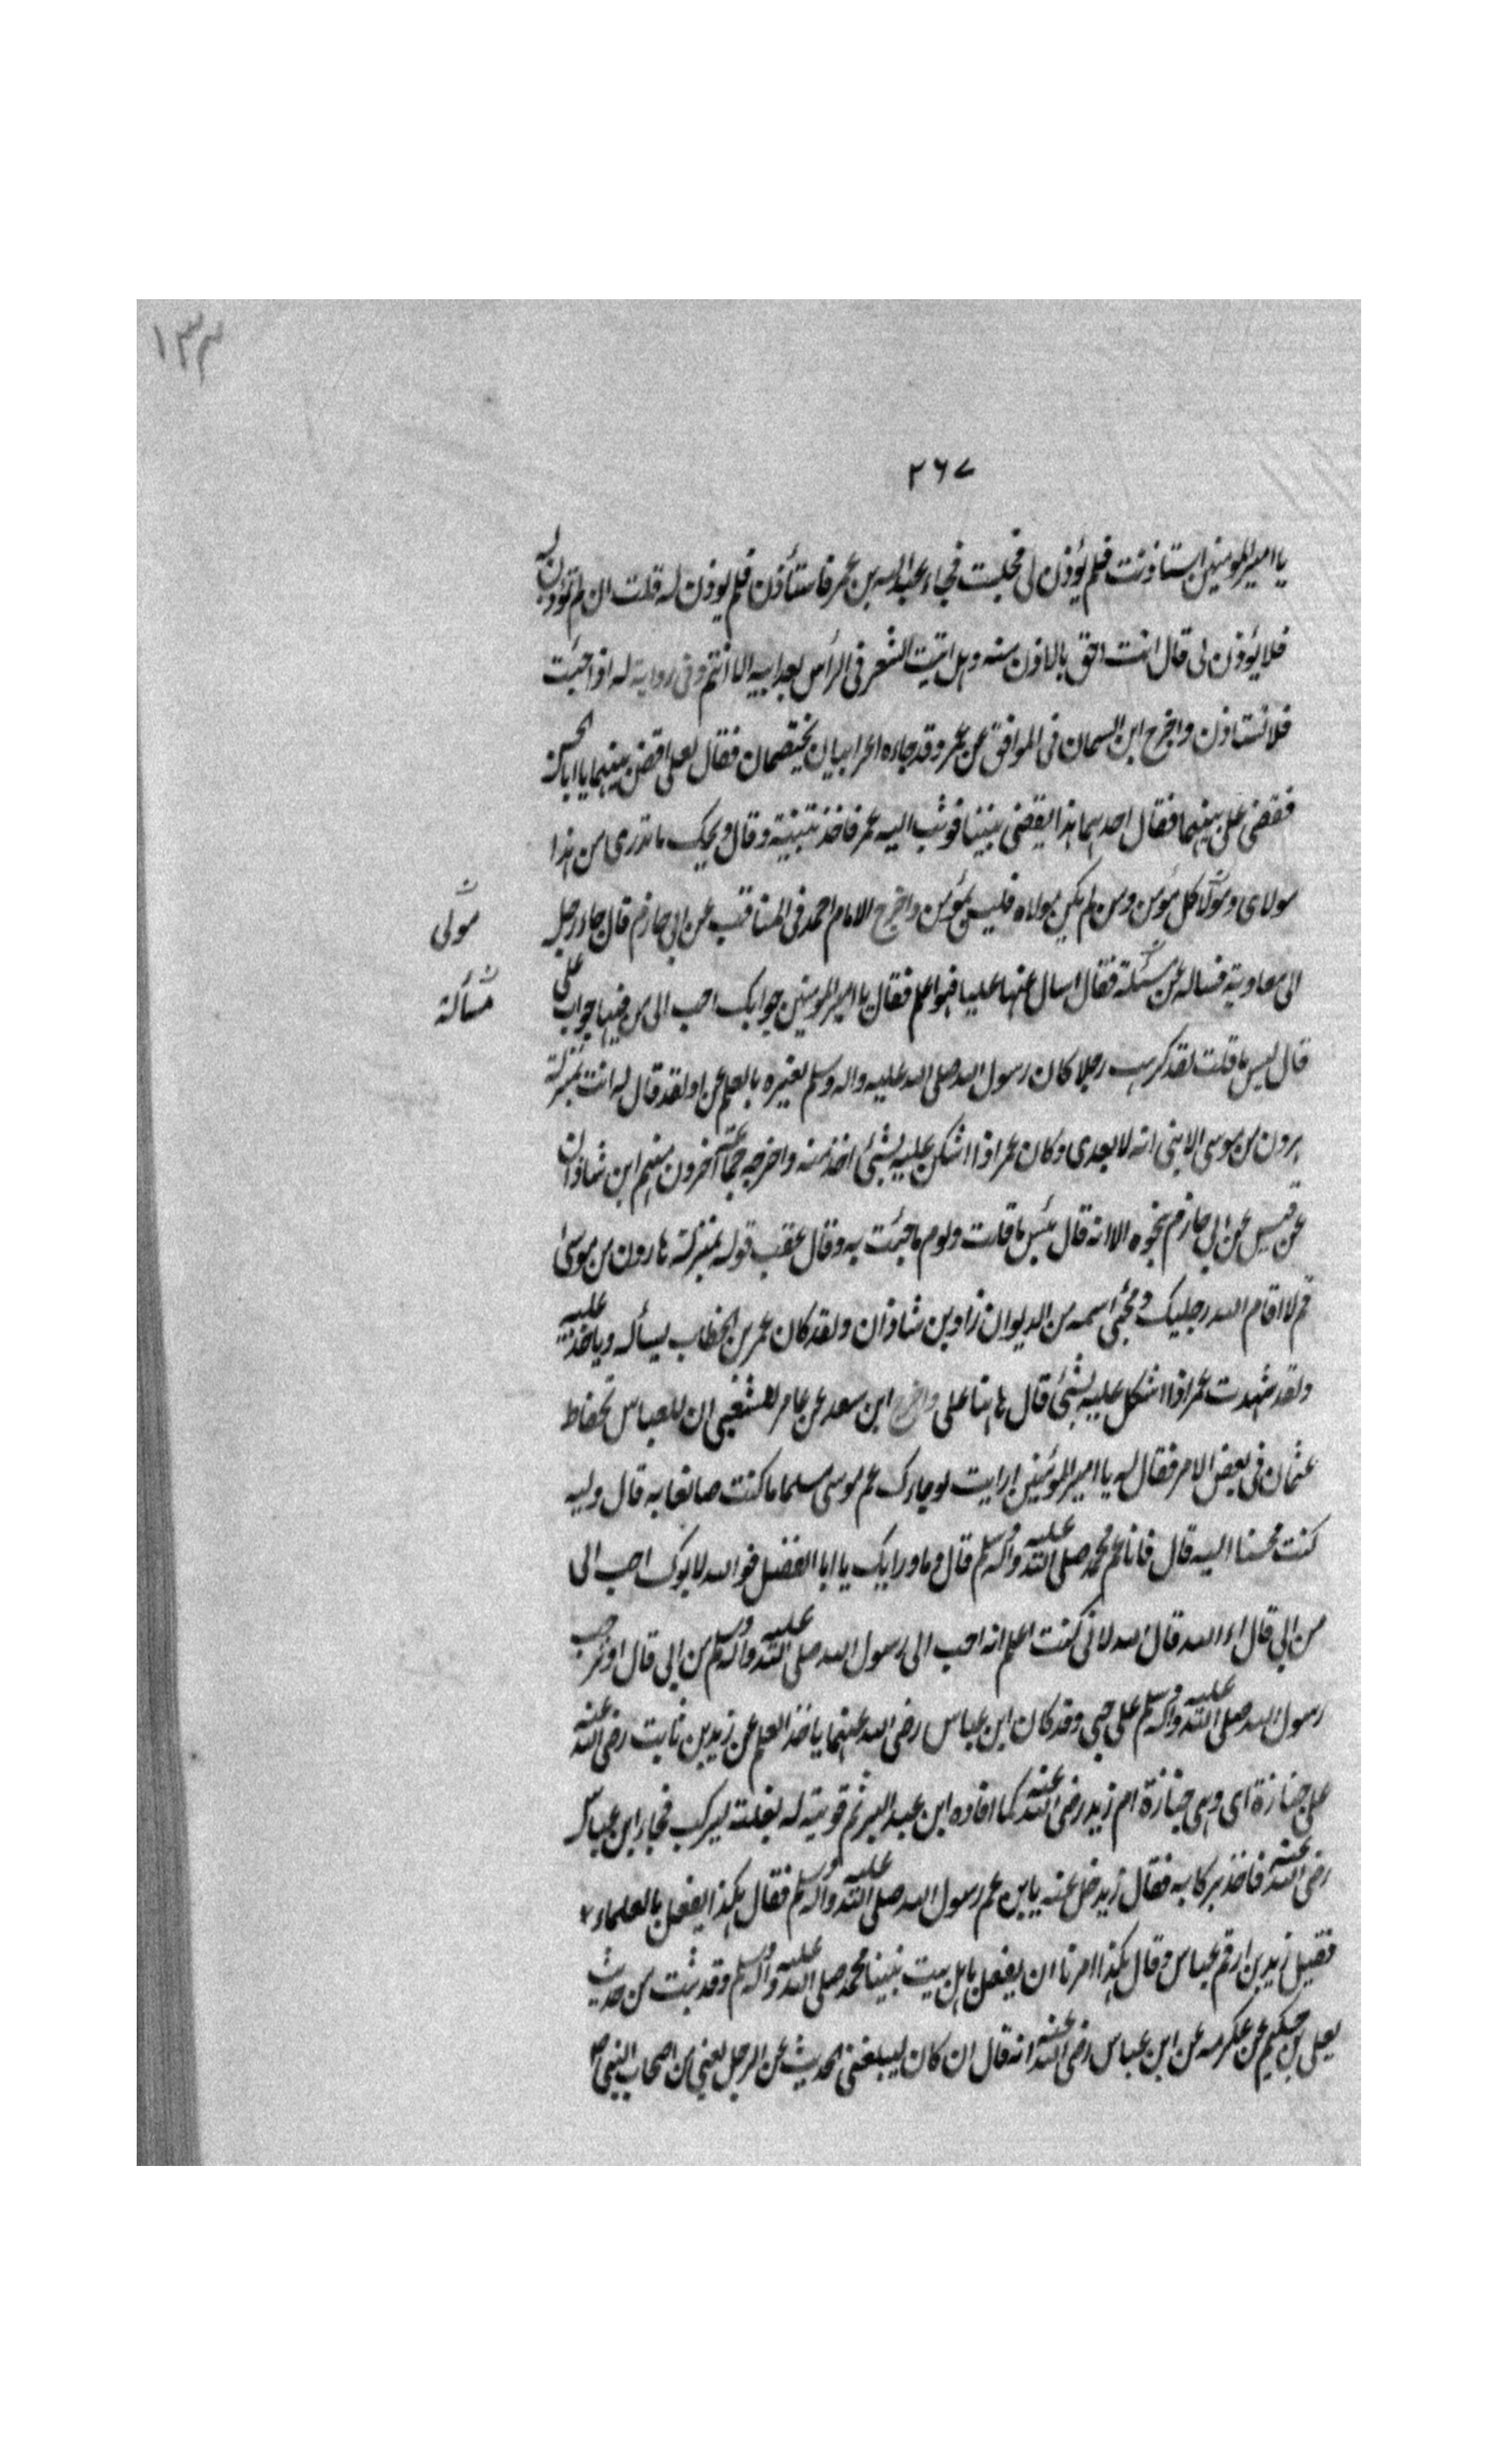 ١٣٣
٢٦٧
يا امير المومنين استاذنت فلم يؤذن لى فجلست فجاء عبد الله بن عمر فاستأذن فلم يوذن له قلت ان لم تؤذن له
فلا يؤذن لى قال انت احق بالاذن منه وهل انبت الشعر فى الرأس بعد ابيه الا انتم وفى رواية له اذا جئت
فلا تستاذن واخرج ابن السمان فى الموافق عن عمر وقد جاءه اعرابيان يختصمان فقال لعلى اقض بينهما يا ابا الحسن
فقضى على بينهما فقال احدهما هذا يقضى بيننا فوثب اليه عمر فاخذ بتلبيته وقال ويحك ما تدرى من هذا
مولاى ومولا كل مؤمن ومن لم يكن مولاه فليس بمؤمن واخرج الامام احمد فى المناقب عن ابى حازم قال جاء رجل
مولى
الى معاوية فساله عن مسئلة فقال اسال عنها عليا فهو اعلم فقال يا امير المومنين جوابك احب الى من فيها جواب على
مسألة
قال بئس ما قلت لقد كرهت رجلا كان رسول الله صلى الله عليه واله وسلم يعزه بالعلم عزا ولقد قال له انت بمنزلة
هرون من موسى الا بنى انه لا بعدى وكان عمر اذا اشكل عليه شئ اخذ منه واخرجه جماعة آخرون منهم ابن شاذان
عن قيس عن ابى حازم بنحوه الا انه قال بئس ما قلت ولوم ما جئت به وقال عقب قوله بمنزلة هارون من موسى
قم لا اقام الله رجليك ومحى اسمه من الديوان زاد بن شاذان ولقد كان عمر بن الخطاب يسأله وياخذ عليه
ولقد شهدت عمر اذا اشكل عليه شئ قال هاهنا على واخرج ابن سعد عن عامر الشعبى ان للعباس تحفاظ
عثمان فى بعض الامر فقال له يا امير المؤمنين ارايت لو جاءك عم موسى مسلما ما كنت صانعا به قال وليه
كنت محسنا اليه قال فانا عم محمد صلى الله عليه واله وسلم قال وما ورايك يا ابا الفضل فو الله لابوك احب الى
من ابى قال اء الله قال الله لانى كنت اعلم انه احب الى رسول الله صلى الله عليه واله وسلم من ابى قال اوثر حب
رسول الله صلى الله عليه واله وسلم على حبى وقد كان ابن عباس رضى الله عنهما ياخذ العلم عن زيد بن ثابت رضى الله عنه
على جنازة اى وهى جنازة ام زيد رضى الله عنه كما افاده ابن عبد البر ثم قربته له بغلته ليركب فجاء ابن عباس
رضى الله عنه فاخذ بركابه فقال زيد خل عنه يا بن عم رسول الله صلى الله عليه واله وسلم فقال هكذا يفعل بالعلماء
فقبل زيد بن ارقم عباس وقال هكذا امرنا ان يفعل باهل بيت نبينا محمد صلى الله عليه واله وسلم وقد ثبت من حديث
يعلى بن حكيم عن عكرمه عن ابن عباس رضى الله عنه انه قال ان كان ليبلغنى الحديث عن الرجل يعنى من اصحاب النبى